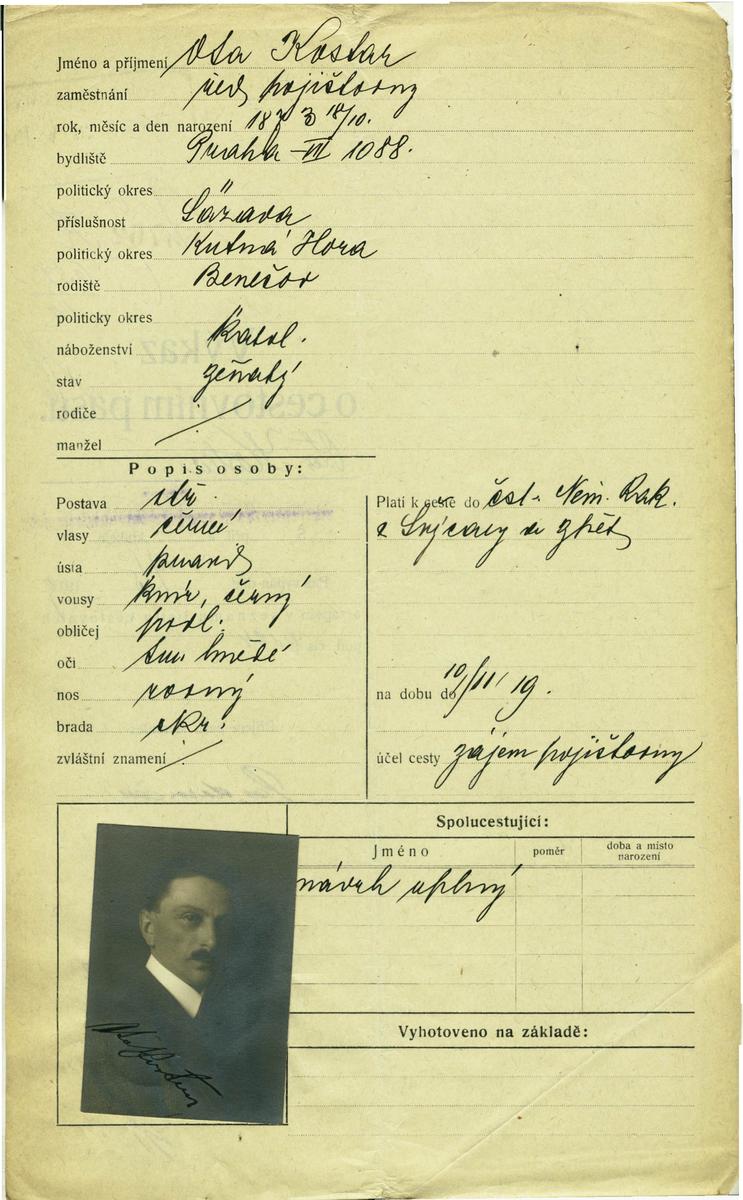 Jméno a příjmení Ota Kostar
zaměstnání úřed pojišťovny
rok, měsíc a den narození 1873 18/10.
bydliště Praha - VII 1088.
politický okres "
příslušnost Sázava
politický okres Kutná Hora
rodiště Benešov
politicky okres "
náboženství katol.
stav ženatý
rodiče
manžel
Popis osoby:
Postava stř.
vlasy černé
ústa pravid
vousy knír, černý
obličej podl.
oči tm. hnědé
nos rovný
brada okr.
zvláštní znamení
Platí k cestě do čsl. Něm. Rak.
a Švýcary a zpět
na dobu do 10/11/19.
účel cesty zájem pojišťovny
Spolucestující:
Jméno poměr doba a místo narození
návrh úplný
Vyhotoveno na základě: